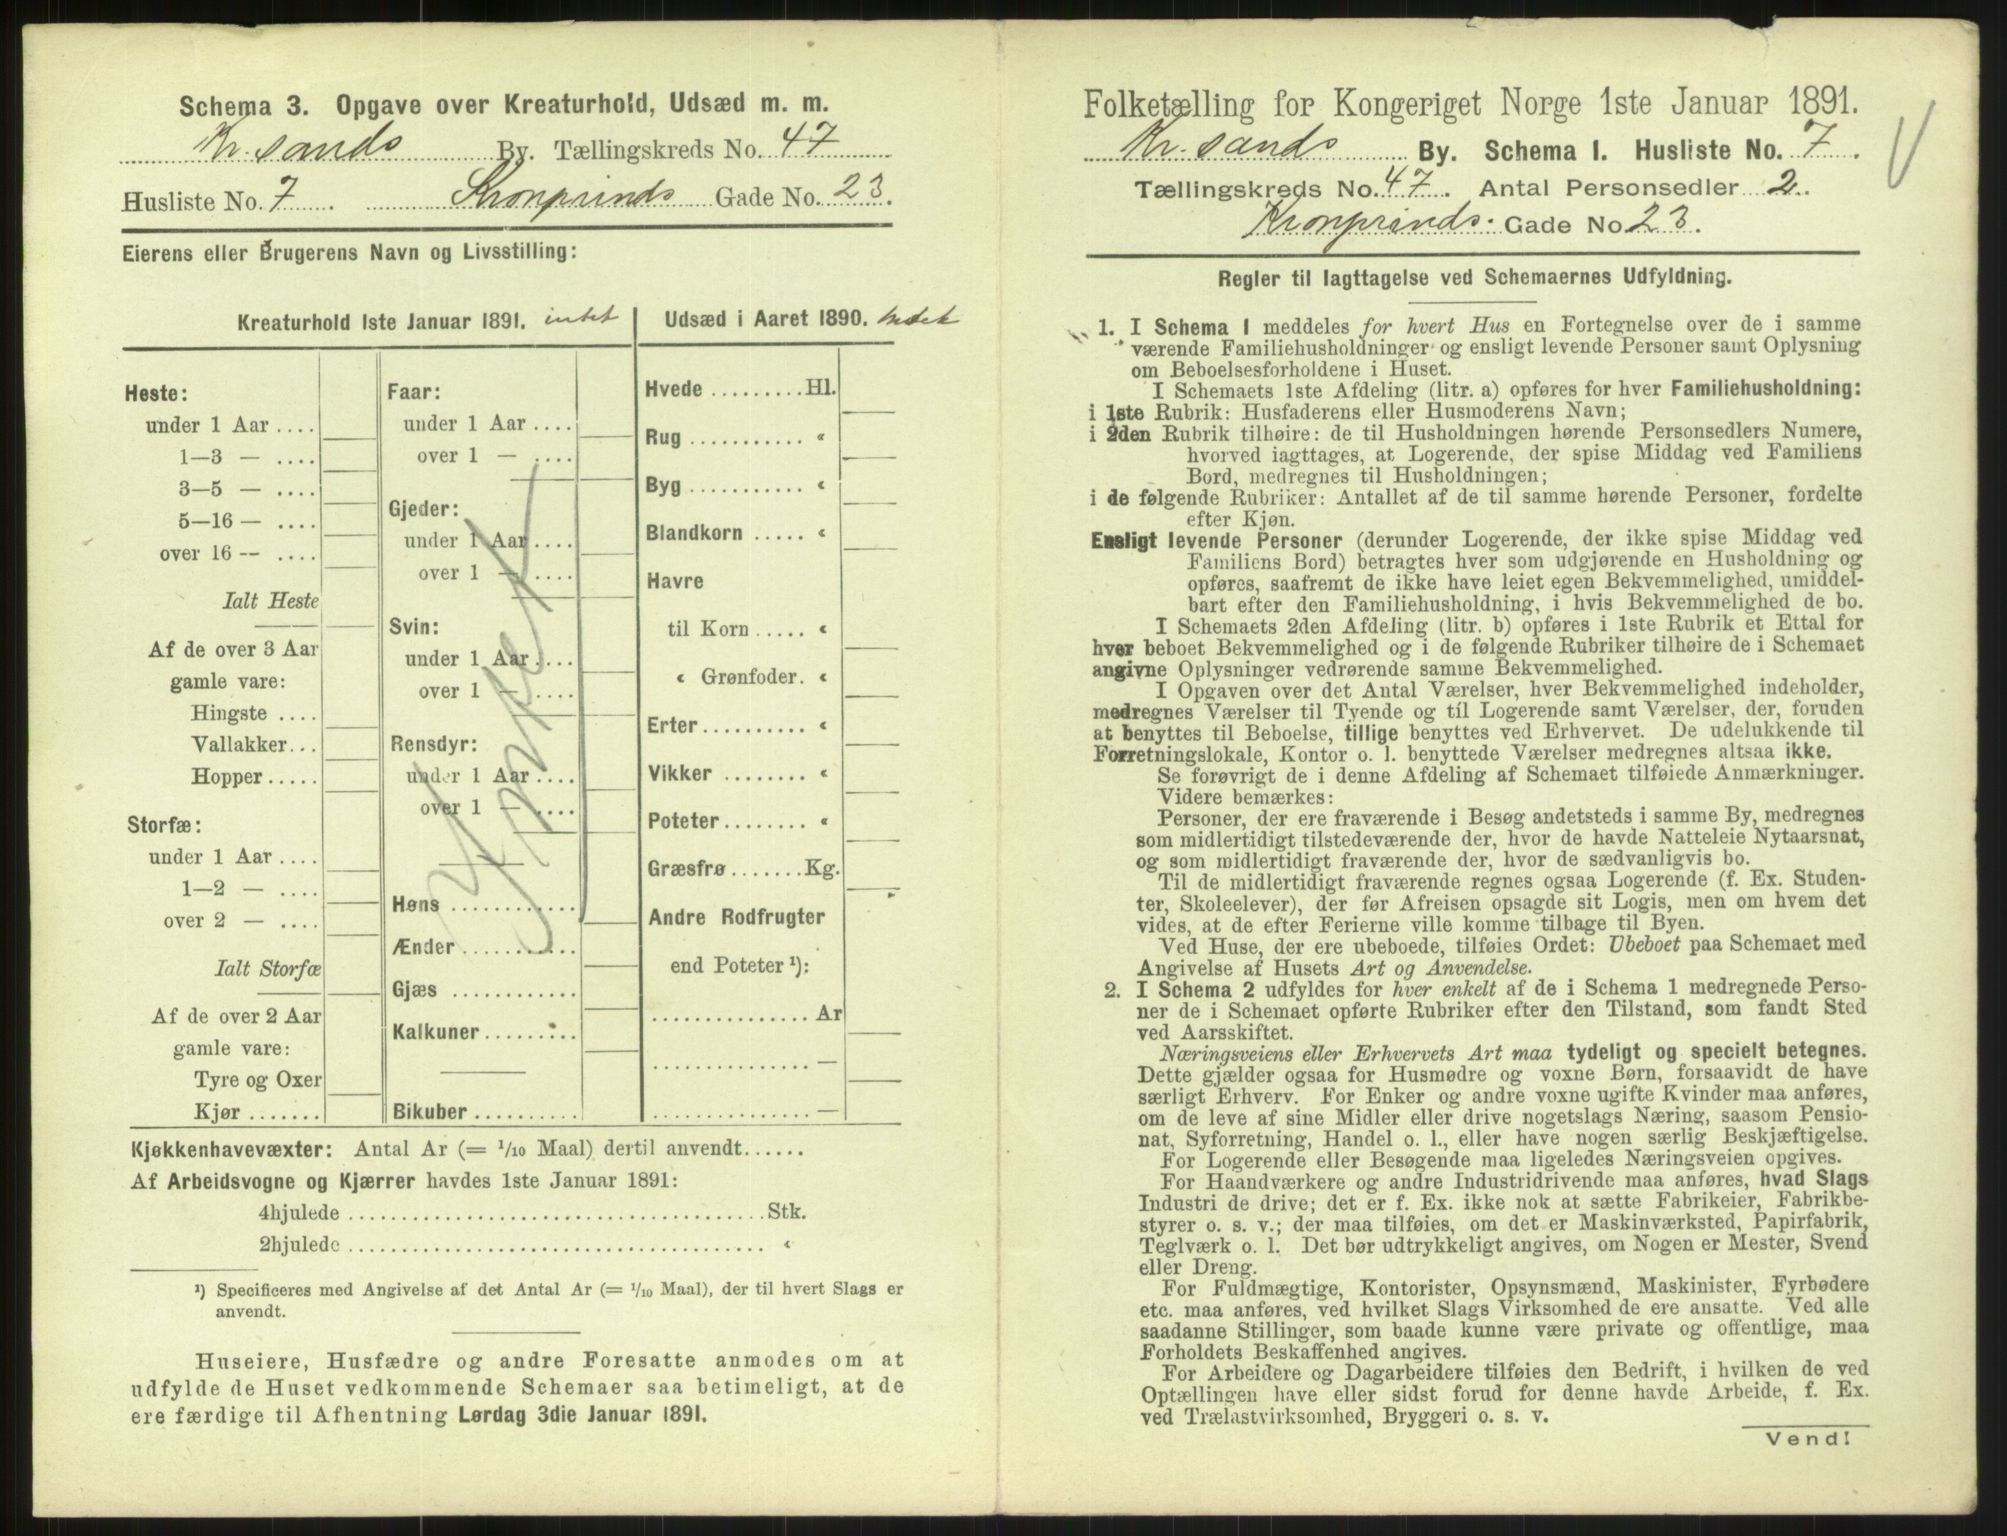 Schema 3. Opgave over Kreaturhold, Udsæd m. m.
Kr.sands By. Tællingskreds No. 47
Husliste No. 7 Kronprinds Gade No. 23.
Eierens eller Brugerens Navn og Livsstilling:
Kreaturhold 1ste Januar 1891. intet
Heste:
under 1 Aar ....
1—3 — ....
3—5 — ....
5—16 — ....
over 16 — ....
Ialt Heste
Af de over 3 Aar
gamle vare:
Hingste ....
Vallakker...
Hopper.....
Storfæ:
under 1 Aar ....
1—2 — ....
over 2 — ....
Ialt Storfæ
Af de over 2 Aar
gamle vare:
Tyre og Oxer
Kjør .......
Faar:
under 1 Aar ....
over 1 — ....
Gjeder:
under 1 Aar ....
over 1 — ....
Svin:
under 1 Aar ....
over 1 — ....
Rensdyr:
under 1 Aar ....
over 1 — ....
Høns ............
Ænder ...........
Gjæs ............
Kalkuner .........
Bikuber ..........
Udsæd i Aaret 1890. Intet
Hvede .........Hl.
Rug ........... “
Byg ........... “
Blandkorn ..... “
Havre
til Korn ..... “
“ Grønfoder. “
Erter.......... “
Vikker ........ “
Poteter........ “
Græsfrø .......Kg.
Andre Rodfrugter
end Poteter ¹):
............... Ar
............... —
............... —
Kjøkkenhavevæxter: Antal Ar (= 1/10 Maal) dertil anvendt......
Af Arbeidsvogne og Kjærrer havdes 1ste Januar 1891:
4hjulede ........................................Stk.
2hjulede ........................................ “
¹) Specificeres med Angivelse af det Antal Ar (= 1/10 Maal), der til hvert Slags er
anvendt.
Huseiere, Husfædre og andre Foresatte anmodes om at
udfylde de Huset vedkommende Schemaer saa betimeligt, at de
ere færdige til Afhentning Lørdag 3die Januar 1891.
Folketælling for Kongeriget Norge 1ste Januar 1891.
Kr.sands By. Schema I. Husliste No. 7.
Tællingskreds No. 47. Antal Personsedler 2.
Kronprinds Gade No 23.
Regler til Iagttagelse ved Schemaernes Udfyldning.
1. I Schema 1 meddeles for hvert Hus en Fortegnelse over de i samme
værende Familiehusholdninger og ensligt levende Personer samt Oplysning
om Beboelsesforholdene i Huset.
I Schemaets 1ste Afdeling (litr. a) opføres for hver Familiehusholdning:
i 1ste Rubrik: Husfaderens eller Husmoderens Navn;
i 2den Rubrik tilhøire: de til Husholdningen hørende Personsedlers Numere,
hvorved iagttages, at Logerende, der spise Middag ved Familiens
Bord, medregnes til Husholdningen;
i de følgende Rubriker: Antallet af de til samme hørende Personer, fordelte
efter Kjøn.
Ensligt levende Personer (derunder Logerende, der ikke spise Middag ved
Familiens Bord) betragtes hver som udgjørende en Husholdning og
opføres, saafremt de ikke have leiet egen Bekvemmelighed, umiddel-
bart efter den Familiehusholdning, i hvis Bekvemmelighed de bo.
I Schemaets 2den Afdeling (litr. b) opføres i 1ste Rubrik et Ettal for
hver beboet Bekvemmelighed og i de følgende Rubriker tilhøire de i Schemaet
angivne Oplysninger vedrørende samme Bekvemmelighed.
I Opgaven over det Antal Værelser, hver Bekvemmelighed indeholder,
medregnes Værelser til Tyende og til Logerende samt Værelser, der, foruden
at benyttes til Beboelse, tillige benyttes ved Erhvervet. De udelukkende til
Forretningslokale, Kontor o. l. benyttede Værelser medregnes altsaa ikke.
Se forøvrigt de i denne Afdeling af Schemaet tilføiede Anmærkninger.
Videre bemærkes:
Personer, der ere fraværende i Besøg andetsteds i samme By, medregnes
som midlertidigt tilstedeværende der, hvor de havde Natteleie Nytaarsnat,
og som midlertidigt fraværende der, hvor de sædvanligvis bo.
Til de midlertidigt fraværende regnes ogsaa Logerende (f. Ex. Studen-
ter, Skoleelever), der før Afreisen opsagde sit Logis, men om hvem det
vides, at de efter Ferierne ville komme tilbage til Byen.
Ved Huse, der ere ubeboede, tilføies Ordet: Ubeboet paa Schemaet med
Angivelse af Husets Art og Anvendelse.
2. I Schema 2 udfyldes for hver enkelt af de i Schema 1 medregnede Perso-
ner de i Schemaet opførte Rubriker efter den Tilstand, som fandt Sted
ved Aarsskiftet.
Næringsveiens eller Erhvervets Art maa tydeligt og specielt betegnes.
Dette gjælder ogsaa for Husmødre og voxne Børn, forsaavidt de have
særligt Erhverv. For Enker og andre voxne ugifte Kvinder maa anføres,
om de leve af sine Midler eller drive nogetslags Næring, saasom Pensio-
nat, Syforretning, Handel o. l., eller have nogen særlig Beskjæftigelse.
For Logerende eller Besøgende maa ligeledes Næringsveien opgives.
For Haandværkere og andre Industridrivende maa anføres, hvad Slags
Industri de drive; det er f. Ex. ikke nok at sætte Fabrikeier, Fabrikbe-
styrer o. s. v.; der maa tilføies, om det er Maskinværksted, Papirfabrik,
Teglværk o. l. Det bør udtrykkeligt angives, om Nogen er Mester, Svend
eller Dreng.
For Fuldmægtige, Kontorister, Opsynsmænd, Maskinister, Fyrbødere
etc. maa anføres, ved hvilket Slags Virksomhed de ere ansatte. Ved alle
saadanne Stillinger, som baade kunne være private og offentlige, maa
Forholdets Beskaffenhed angives.
For Arbeidere og Dagarbeidere tilføies den Bedrift, i hvilken de ved
Optællingen have eller sidst forud for denne havde Arbeide, f. Ex.
ved Trælastvirksomhed, Bryggeri o. s. v.
Vend!